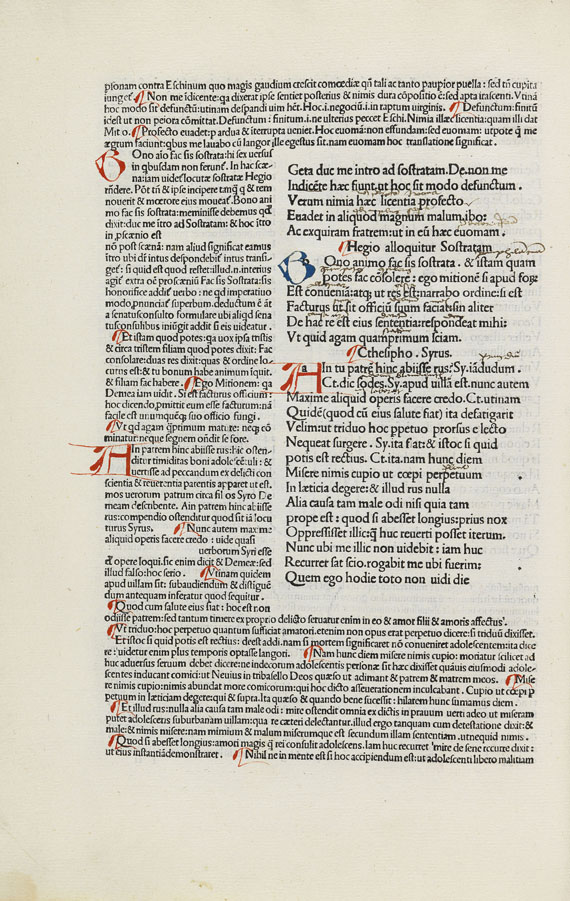 psonam contra Eschinum quo magis gaudium crescit comœdiæ qñ tali ac tanto paupior puella : sed tñ cupita
iunget. Non me idicente: qa dixerat ipse sentiet posterius & nimis dura cōpositio é: sed apta irascenti. Vtinā
hoc modo sit defunctū: utinam despandi uim hét. Hoc .i. negociū .i. in raptum uirginis. Defunctum: finitū
id est ut non peiora cōmittat. Defunctum : finitum .i. ne ulterius peccet Eschi. Nimia illæc licentia: quam illi dat
Mit o. Profecto euadet: p ardua & iterrupta ueniet. Hoc euomā: non effundam: sed euomam: utpote q me
ægrum faciunt: qbus me lauabo cū langor ille egestus sit. nam euomam hoc translatione significat.
Bono aio fac sis sostrata: hi sex uersus
in qbusdam non ferunt. In hac scæ-
na: iam uides locutæ sostratæ Hegio
rñdere. Pót tñ & ipse incipere tamq & tem
nouerit & mœrore eius moueat. Bono ani
mo fac sis sostrata: meminisse debemus qd
dixit: duc me itro ad Sostratam: & hoc itro
in pscænio est
nō post scænā: nam aliud significat eamus
itro ubi dr intus despondebit intus transi-
get: si quid est quod restet: illud .n. interius
agit extra ó pscæniū Fac sis Sostrata: sis
honorifice addit uerbo: ne qd imperatiuo
modo, pnunciet superbum. deductum é át
a senatusconsulto formulare ubi aliqd sena
tusconsultibus iniūgit addit si eis uideatur.
Et istam quod potes: qa uox ipsa tristis
& circa tristem filiam quod potes dixit: Fac
consolare: duas res dixit: quas & ordine lo-
cutus est: & tu bonum habe animum iquit.
& filiam fac habere. Ego Mitionem: qa
Demea iam uidit. Si est facturus officium:
hoc dicendo, pmittit eum esse facturum: nā
facile est unumquēq; suo officio fungi.
Vt qd agam qprimum mature: ne qcō
minatur: neque segnem oñdit se fore.
In patrem hinc abiisse rus: hic osten-
ditur timiditas boni adolescétuli: &
uertisse ad peccandum ex delicti con
scientia & reuerentia parentis apparet ut est.
mos uerorum patrum circa filios Syro De
meam describente. Ain patrem hinc abiisse
rus: compendio ostenditur quod sit iā locu
turus Syrus. Nunc autem maxime
aliquid operis facere credo : uide quasi
uerborum Syri esse
& opere loqui. sic enim dicit & Demeæ: sed
illud falso: hoc serio. Vtinam quidem
apud uillam sit: subaudiendum & distiguē
dum antequam inferatur quod sequitur.
Quod cum salute eius fiat: hoc est non
Geta duc me intro ad sostratam. De. non me
Indicéte hæc fiunt: ut hoc sit modo defunctum.
Verum nimia hæc licentia profecto
Euadet in aliquod magnum malum. ibo:
Ac exquiram fratrem: ut in eū hæc euomam.
Hegio alloquitur Sostratam
Bono animo fac sis sostrata. & istam quam
potes fac cōsolere : ego mitionē si apud forū
Est conueniā: atq; ut res est: narrabo ordine: si est
Facturus ut sit officiū suum faciat: sin aliter
De hac re est eius sententia: respondeat mihi:
Vt quid agam quamprimum sciam.
Cthesipho. Syrus.
Ain tu patrē hinc abiisse rus? Sy. iadudum.
Ct. dic sodes. Sy. apud uillā est. nunc autem
Maxime aliquid operis facere credo. Ct. utinam
Quidē (quod cū eius salute fiat) ita defatigarit
Velim: ut triduo hoc ppetuo prorsus e lecto
Nequeat surgere. Sy. ita fiat: & istoc si quid
potis est rectius. Ct. ita. nam hunc diem
Misere nimis cupio ut cœpi perpetuum
In læticia degere: & illud rus nulla
Alia causa tam male odi nisi quia tam
prope est : quod si abesset longius: prius nox
Oppressisset illic: q huc reuerti posset iterum.
Nunc ubi me illic non uidebit : iam huc
Recurret sat scio. rogabit me ubi fuerim:
Quem ego hodie toto non uidi die
odiisse patrem: sed tantum timere ex proprio delicto seruatur enim in eo & amor filii & amoris affectus.
Vt triduo: hoc perpetuo quantum sufficiat amatori. etenim non opus erat perpetuo dicere: si triduū dixisset.
Et istoc si quid potis est rectius: deest addi. nam si mortem significaret nō conueniret adolescentem: ita dice
re : uidetur enim plus temporis optasse langori. Nam hunc diem misere nimis cupio: moriatur scilicet ad
huc aduersus seruum debet dicere: ne indecorum adolescentis personæ sit hæc dixisset quáuis eiusmodi adole-
scentes inducant comici: ut Neuius in tribasello Deos quæso ut adimant & patrem & matrem meos. Mise
re nimis cupio: nimis abundat more comicorum: qui hoc dicto asseuerationem inculcabant. Cupio ut cœpi p
petuum in læticiam degere: qui & supra. Ita quæso & quando bene successit : hilarem hunc sumamus diem.
Et illud rus: nulla alia causa tam male odi : mire ostendit omnia ex dictis in prauum uerti adeo ut miseram
putet adolescens suburbanam uillam: qua re cæteri delectantur. illud ergo tanquam cum detestatione dixit: &
male: & nimis misere: nam mimium & malum miserumque est secundum illam sententiam. ut nequid nimis.
Quod si abesset longius: amori magis q rei consulit adolescens. Iam huc recurret mire de sene recurre dixit:
ut eius instantiā demonstraret. Nihil ne in mente est si hoc accipiendum est: ut adolescenti libero malitiam